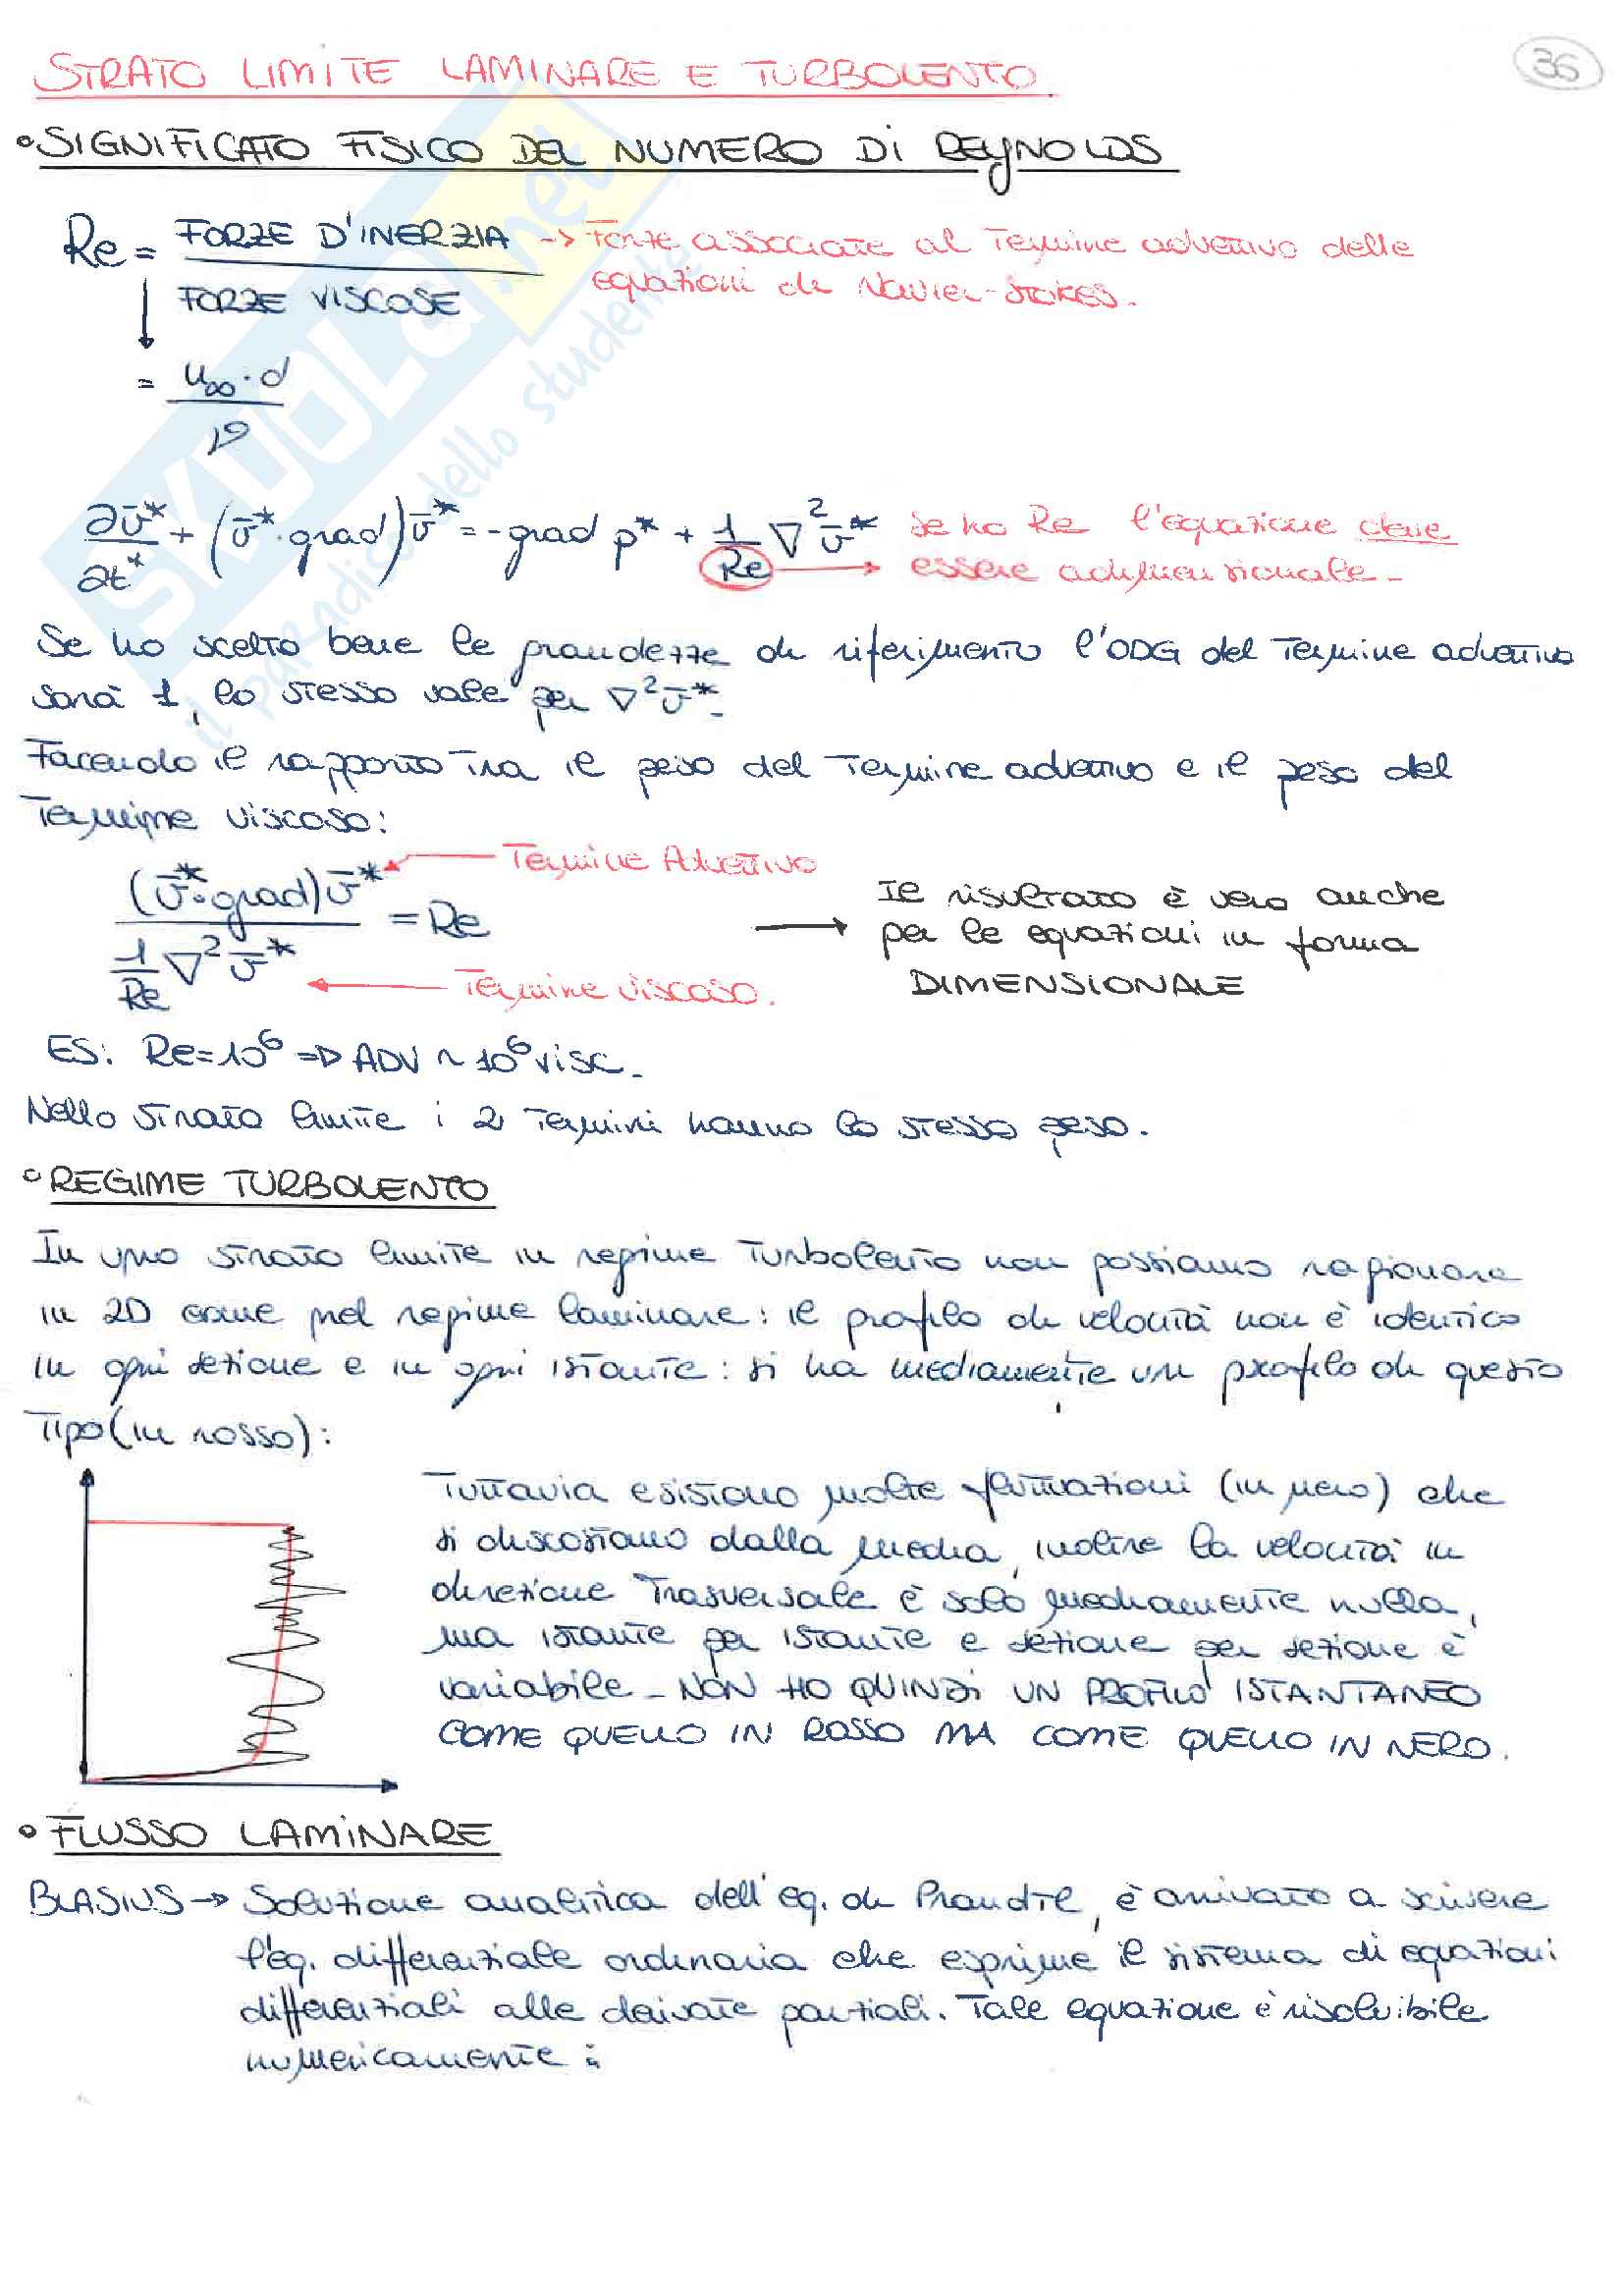 36
STRATO LIMITE LAMINARE E TURBOLENTO
•SIGNIFICATO FISICO DEL NUMERO DI REYNOLDS
Re = FORZE D'INERZIA -> Forze associate al Termine advettivo delle
equazioni di Navier-Stokes.
FORZE VISCOSE
= u∞·d
ν
∂v̄*/∂t* + (v̄*·grad)v̄* = -grad p* + 1/Re ∇²v̄* Se ho Re l'equazione deve
essere adimensionale.
Se ho scelto bene le grandezze di riferimento l'ODG del Termine advettivo
sarà 1, lo stesso vale per ∇²v̄*.
Facendo il rapporto tra il peso del Termine advettivo e il peso del
Termine viscoso:
Termine Advettivo
(v̄*·grad)v̄* = Re
1/Re ∇²v̄*
Termine viscoso.
Il risultato è vero anche
per le equazioni in forma
DIMENSIONALE
ES: Re=10⁶ => ADV ~ 10⁶ visc.
Nello strato limite i 2 termini hanno lo stesso peso.
•REGIME TURBOLENTO
In uno strato limite in regime Turbolento non possiamo ragionare
in 2D come nel regime laminare: il profilo di velocità non è identico
in ogni sezione e in ogni istante: si ha mediamente un profilo di questo
Tipo (in rosso):
Tuttavia esistono molte fluttuazioni (in nero) che
si discostano dalla media, inoltre la velocità in
direzione Trasversale è solo mediamente nulla,
ma istante per istante e sezione per sezione è
variabile. NON HO QUINDI UN PROFILO ISTANTANEO
COME QUELLO IN ROSSO MA COME QUELLO IN NERO.
•FLUSSO LAMINARE
BLASIUS -> Soluzione analitica dell'eq. di Prandtl, è arrivato a scrivere
l'eq. differenziale ordinaria che esprime il sistema di equazioni
differenziali alle derivate parziali. Tale equazione è risolvibile
numericamente:
SKUOLA.net
il paradiso dello studente